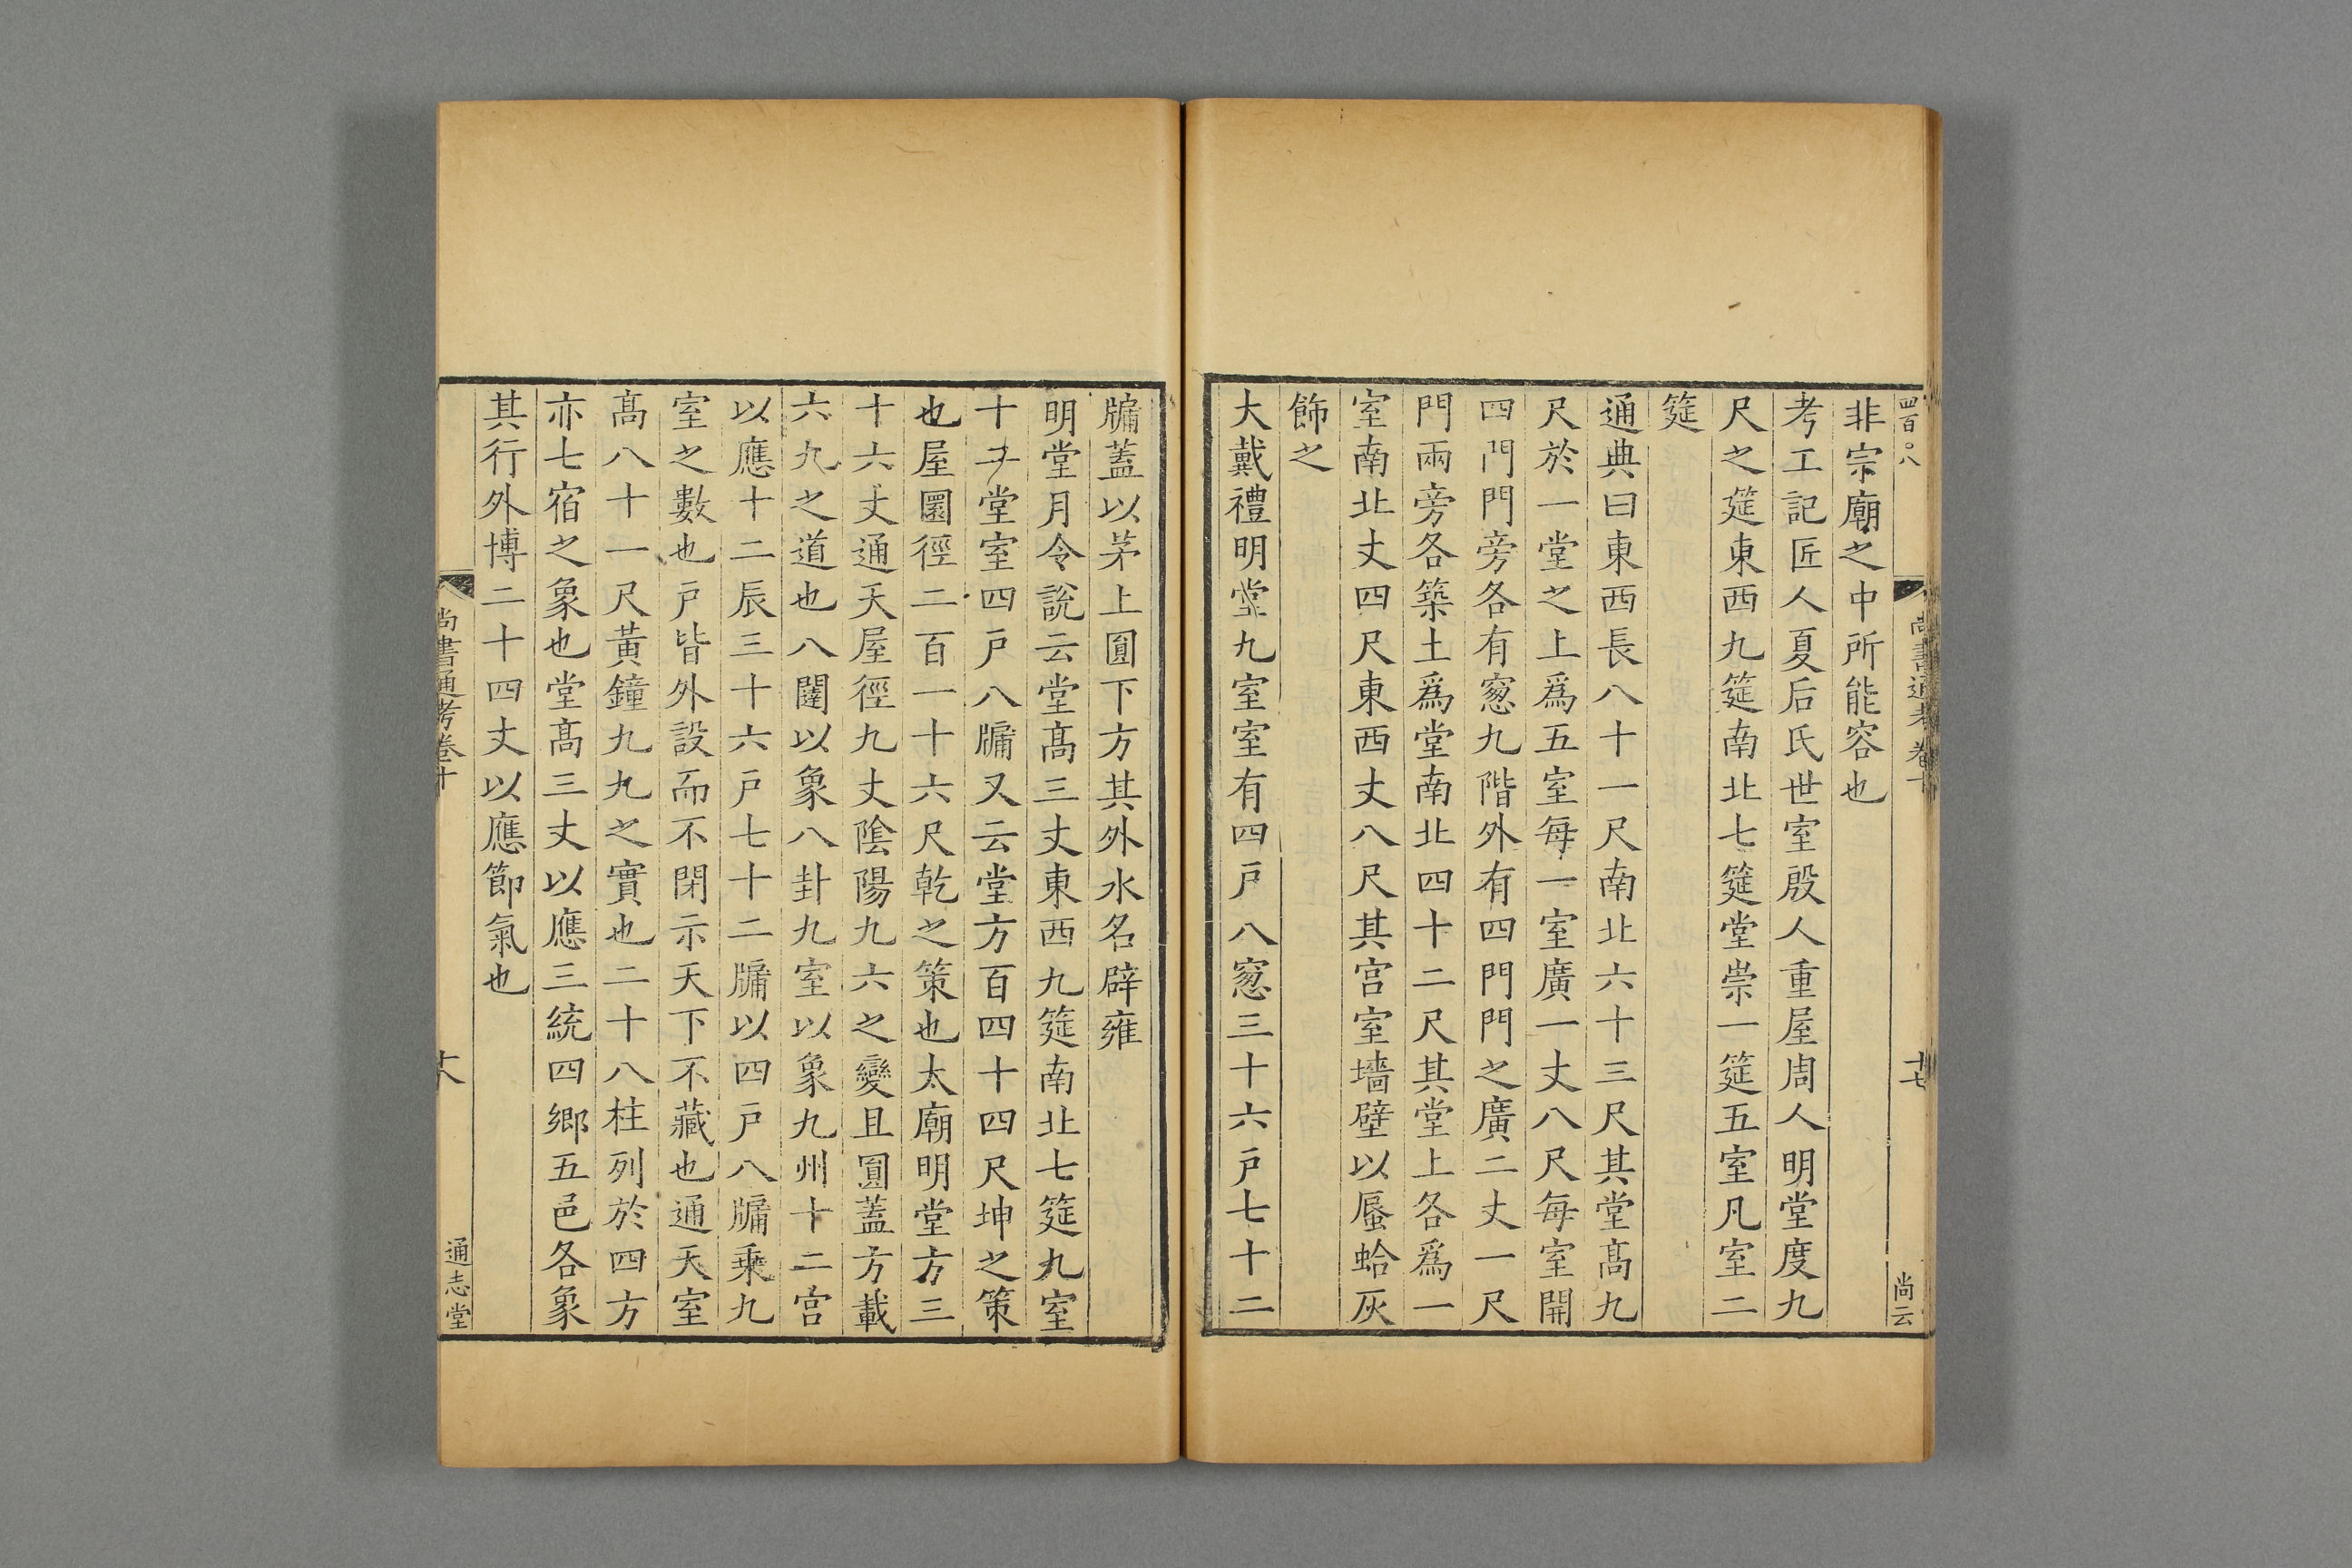 四百〇八
尚書通考卷十
十七
尚云
非宗廟之中所能容也
考工記匠人夏后氏世室殷人重屋周人明堂度九
尺之筵東西九筵南北七筵堂崇一筵五室凡室二
筵
通典曰東西長八十一尺南北六十三尺其堂高九
尺於一堂之上爲五室每一室廣一丈八尺每室開
四門門旁各有窻九階外有四門門之廣二丈一尺
門兩旁各築土爲堂南北四十二尺其堂上各爲一
室南北丈四尺東西丈八尺其宫室墻壁以蜃蛤灰
飾之
大戴禮明堂九室室有四戸八窻三十六戸七十二
牖蓋以茅上圓下方其外水名辟雍
明堂月令說云堂髙三丈東西九筵南北七筵九室
十二堂室四戸八牖又云堂方百四十四尺坤之策
也屋圜徑二百一十六尺乾之策也太廟明堂方三
十六丈通天屋徑九丈隂陽九六之變且圓蓋方載
六九之道也八闥以象八卦九室以象九州十二宫
以應十二辰三十六戸七十二牖以四戸八牖乘九
室之數也戸皆外設而不閉示天下不藏也通天室
髙八十一尺黄鐘九九之實也二十八柱列於四方
亦七宿之象也堂髙三丈以應三統四鄉五邑各象
其行外博二十四丈以應節氣也
尚書通考卷十
十八
通志堂